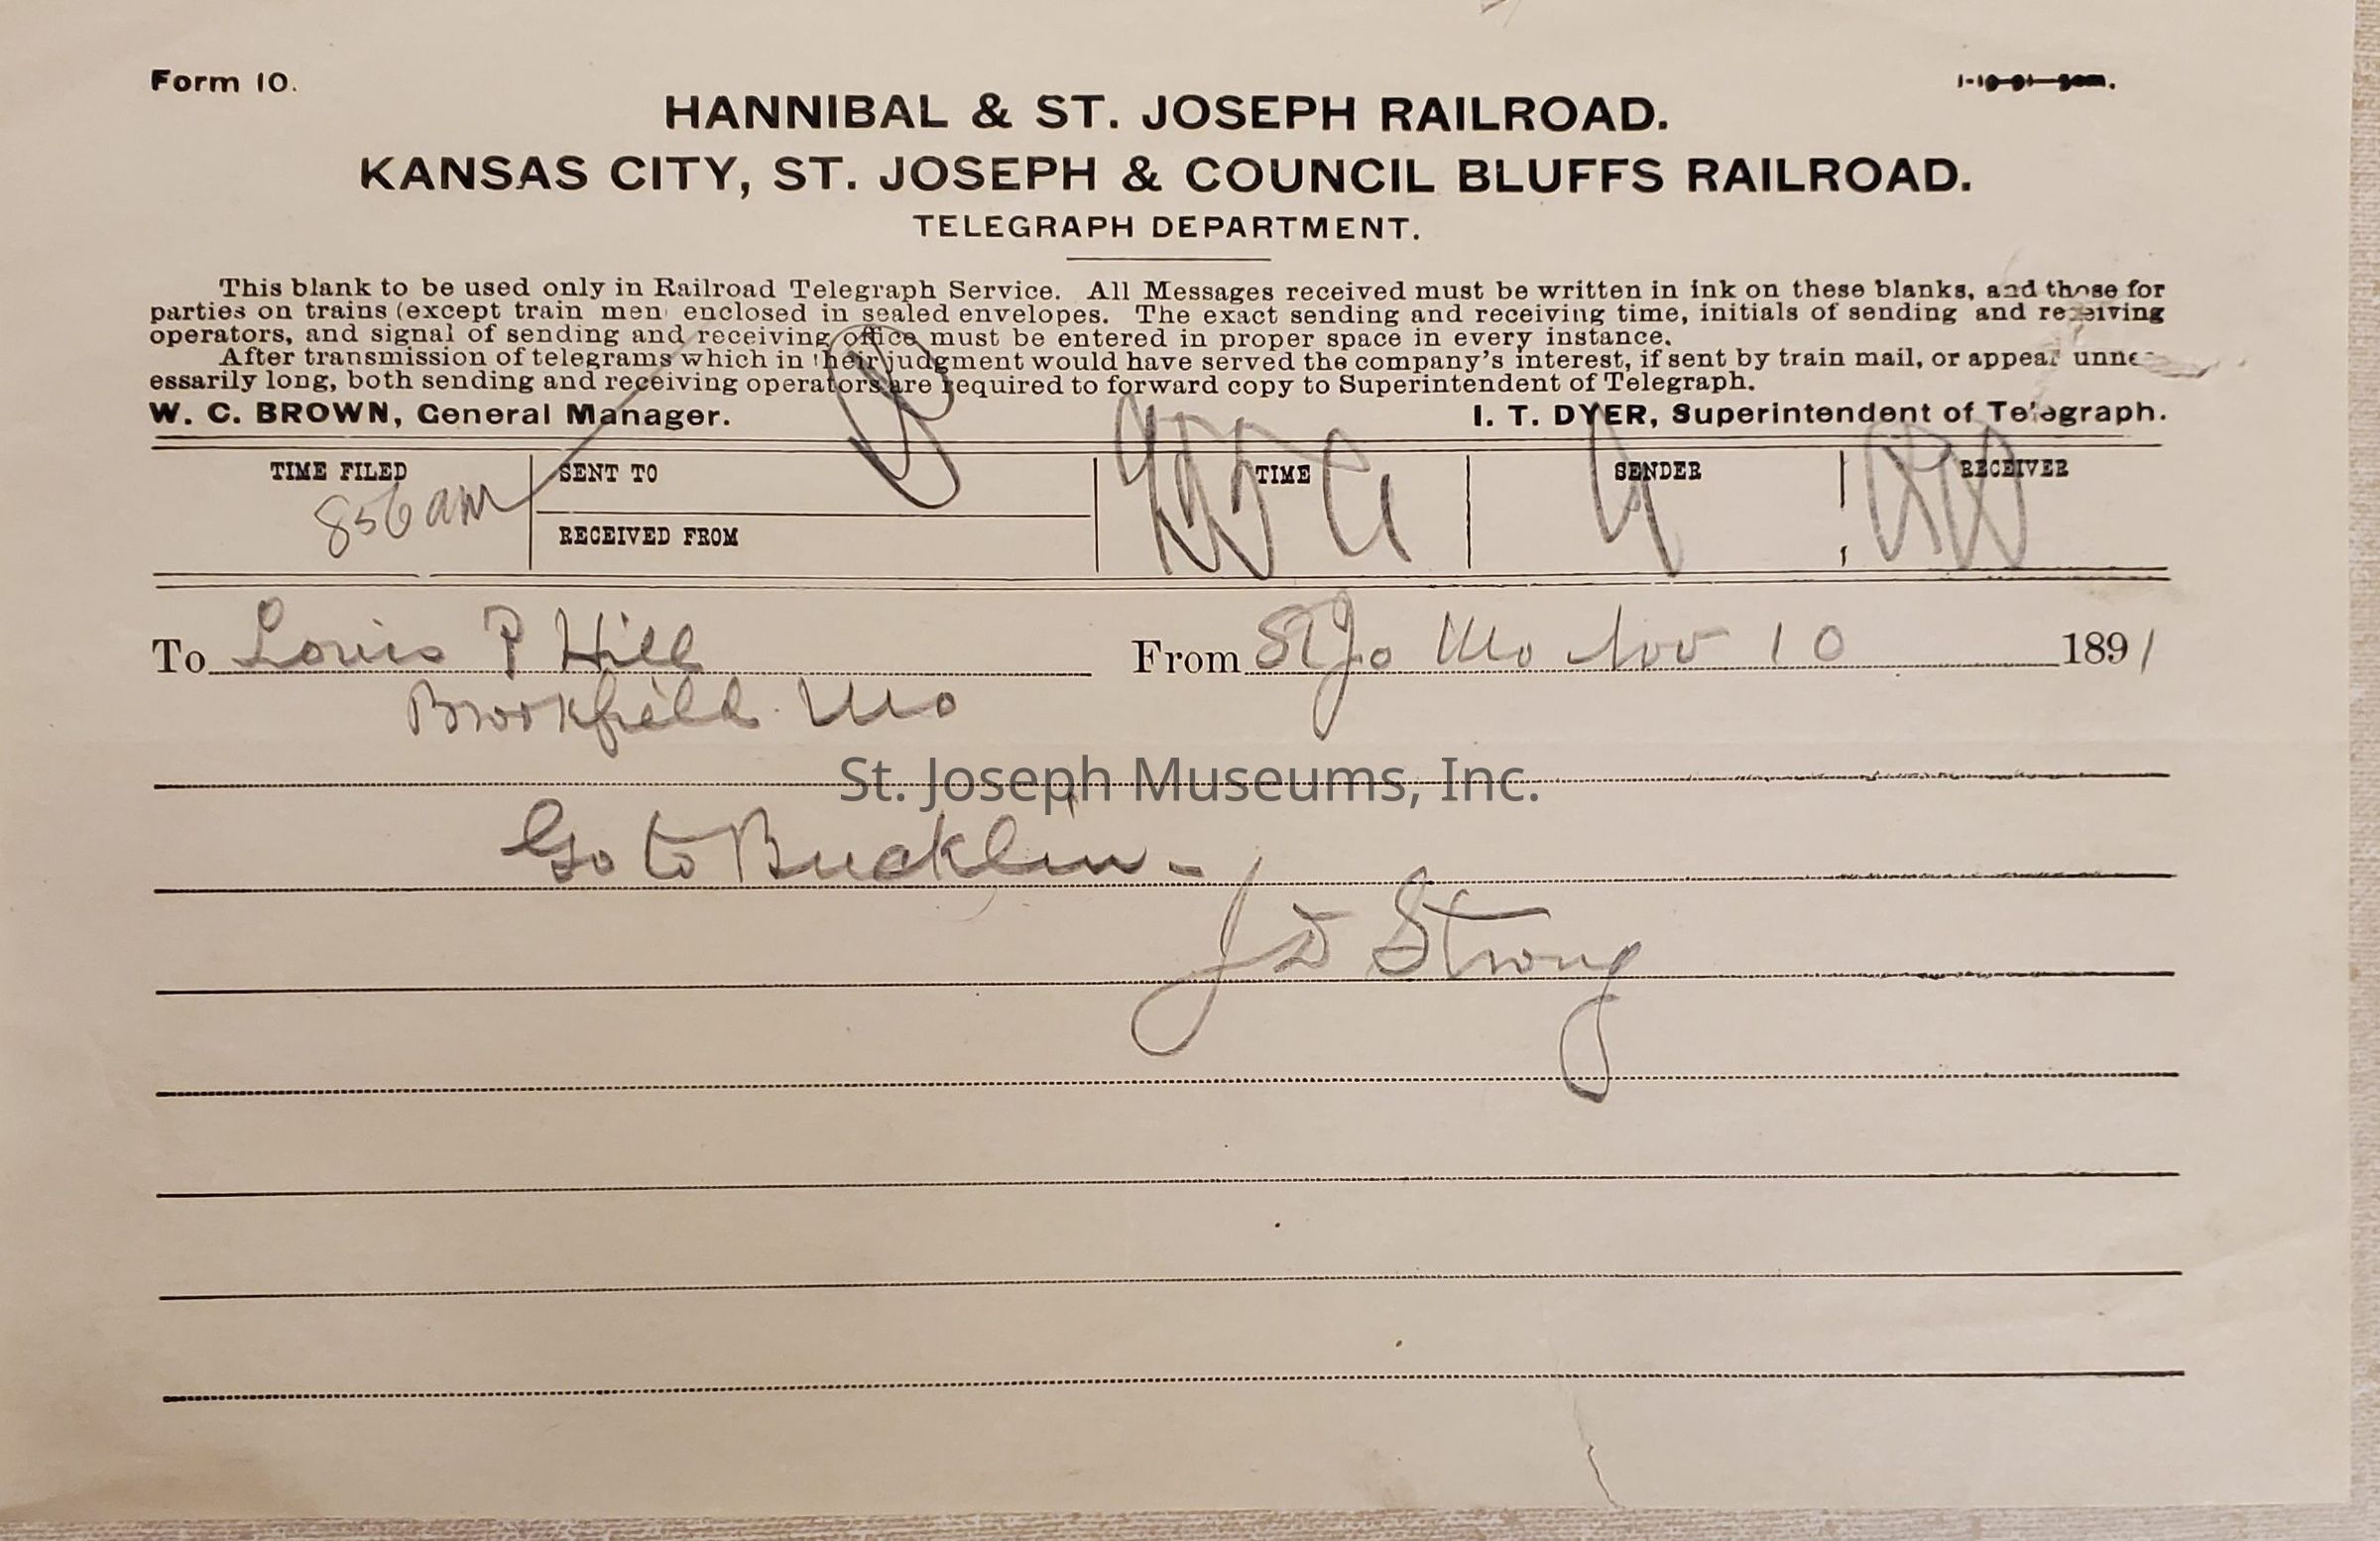 Form 10.
HANNIBAL & ST. JOSEPH RAILROAD.
KANSAS CITY, ST. JOSEPH & COUNCIL BLUFFS RAILROAD.
TELEGRAPH DEPARTMENT.
This blank to be used only in Railroad Telegraph Service. All Messages received must be written in ink on these blanks, and those for
parties on trains (except train men enclosed in sealed envelopes. The exact sending and receiving time, initials of sending and receiving
operators, and signal of sending and receiving office must be entered in proper space in every instance.
After transmission of telegrams which in their judgment would have served the company's interest, if sent by train mail, or appear unne-
essarily long, both sending and receiving operators are required to forward copy to Superintendent of Telegraph.
W. C. BROWN, General Manager. I. T. DYER, Superintendent of Telegraph.
TIME FILED SENT TO TIME SENDER RECEIVER
856 am
RECEIVED FROM
To Louis P Hill From St Jo Mo Nov 10 1891
Brookfield Mo
St. Joseph Museums, Inc.
Go to Bucklin -
J D Strong